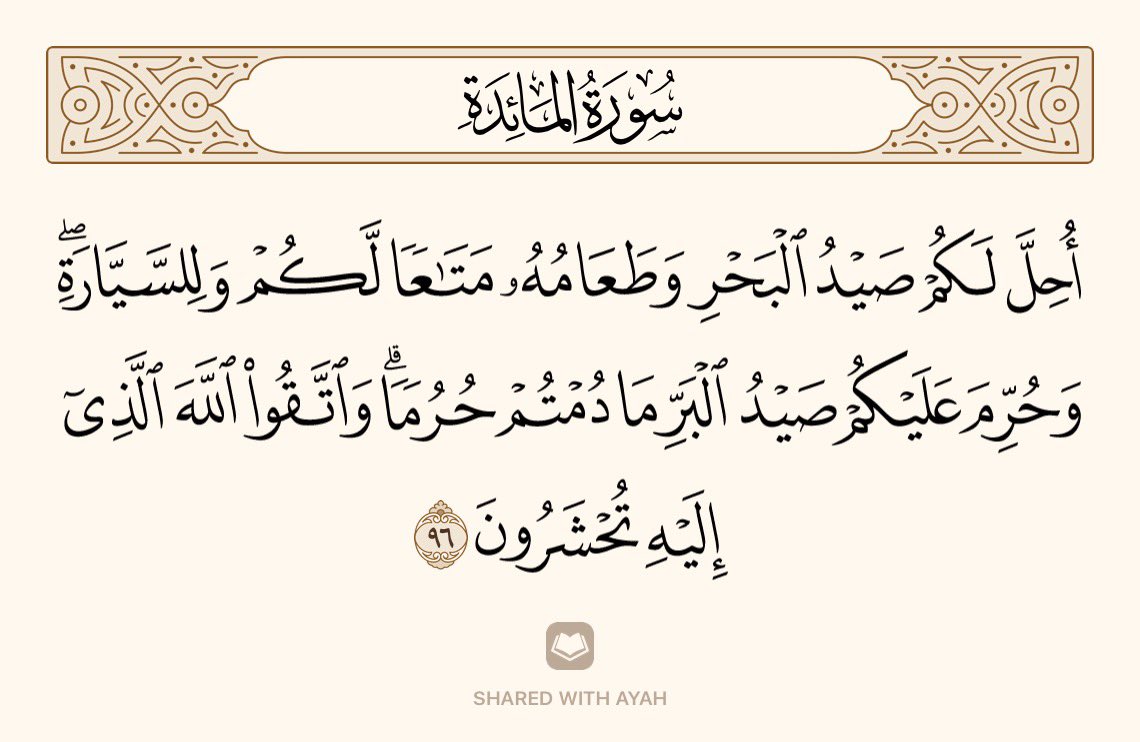 سُورَةُ المَائِدَةِ
أُحِلَّ لَكُمْ صَيْدُ ٱلْبَحْرِ وَطَعَامُهُۥ مَتَٰعًا لَّكُمْ وَلِلسَّيَّارَةِۖ
وَحُرِّمَ عَلَيْكُمْ صَيْدُ ٱلْبَرِّ مَا دُمْتُمْ حُرُمًاۗ وَٱتَّقُوا۟ ٱللَّهَ ٱلَّذِىٓ
إِلَيْهِ تُحْشَرُونَ ٩٦
SHARED WITH AYAH